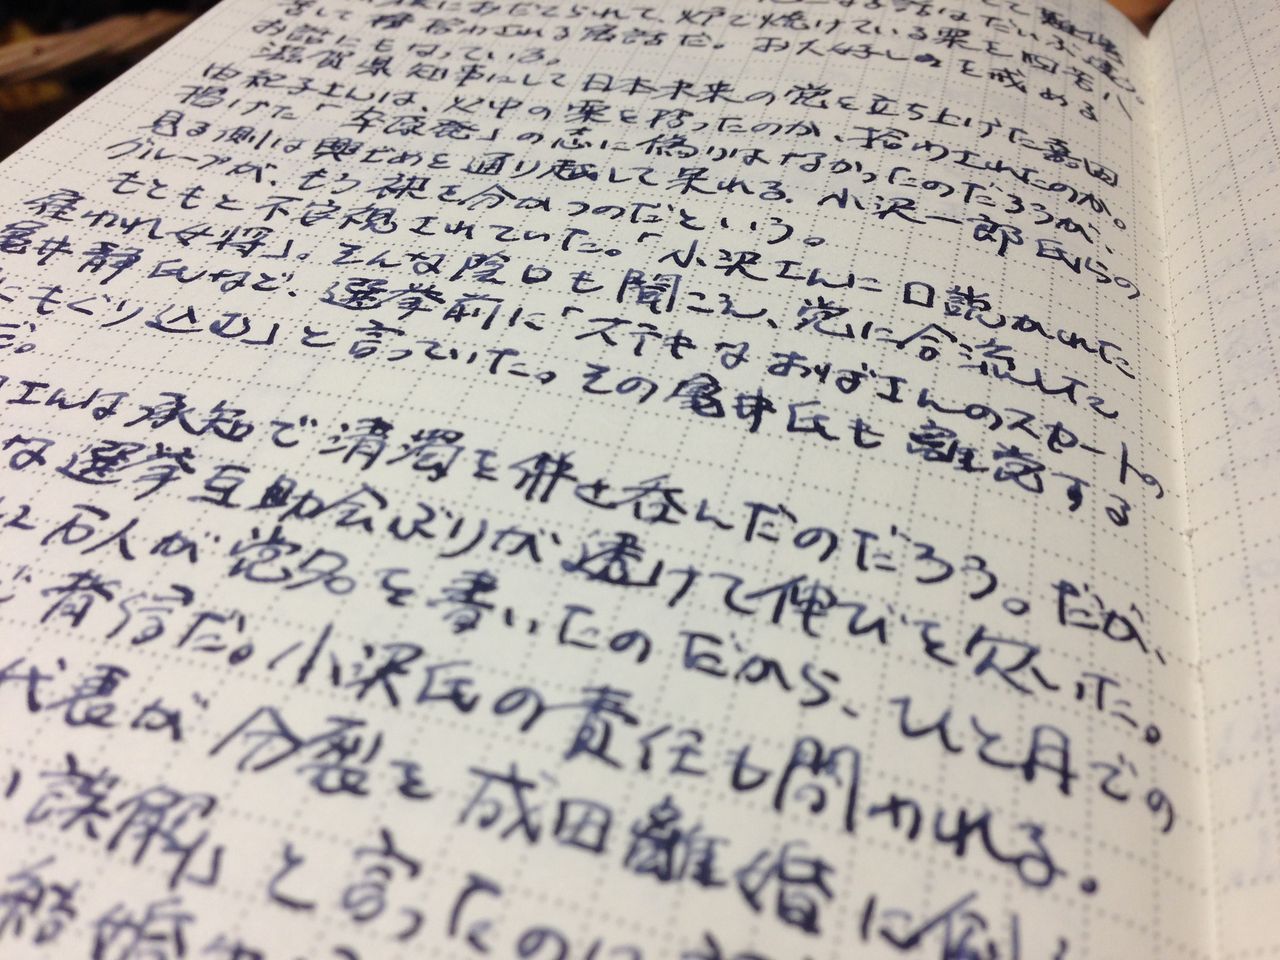 におだてられて、炉で焼けている栗を
拾わされる寓話だ。お人好しのを戒める
お話にもなっている。
滋賀県知事にして日本未来の党を立ち上げた嘉田
由紀子さんは、火中の栗を拾ったのか、拾わされたのか。
掲げた「卒原発」の志に偽りはなかったのだろうが、
見る側は興ざめを通り越して呆れる。小沢一郎氏らの
グループが、もう袂を分かつのだという。
もともと不安視されていた。「小沢さんに口説かれた
雇われ女将」。そんな陰口も聞こえ、党に合流した
亀井静氏など、選挙前に「ステキなおばさんのスカートの
にもぐり込む」と言っていた。その亀井氏も離党する
だ。
さんは承知で清濁を併せ呑んだのだろう。だが、
な選挙互助会ぶりが透けて伸びを欠いた。
2万人が党名を書いたのだから、ひと月での
背信だ。小沢氏の責任も問われる。
代表が分裂を成田離婚に例
誤解」と言ったのに
結婚